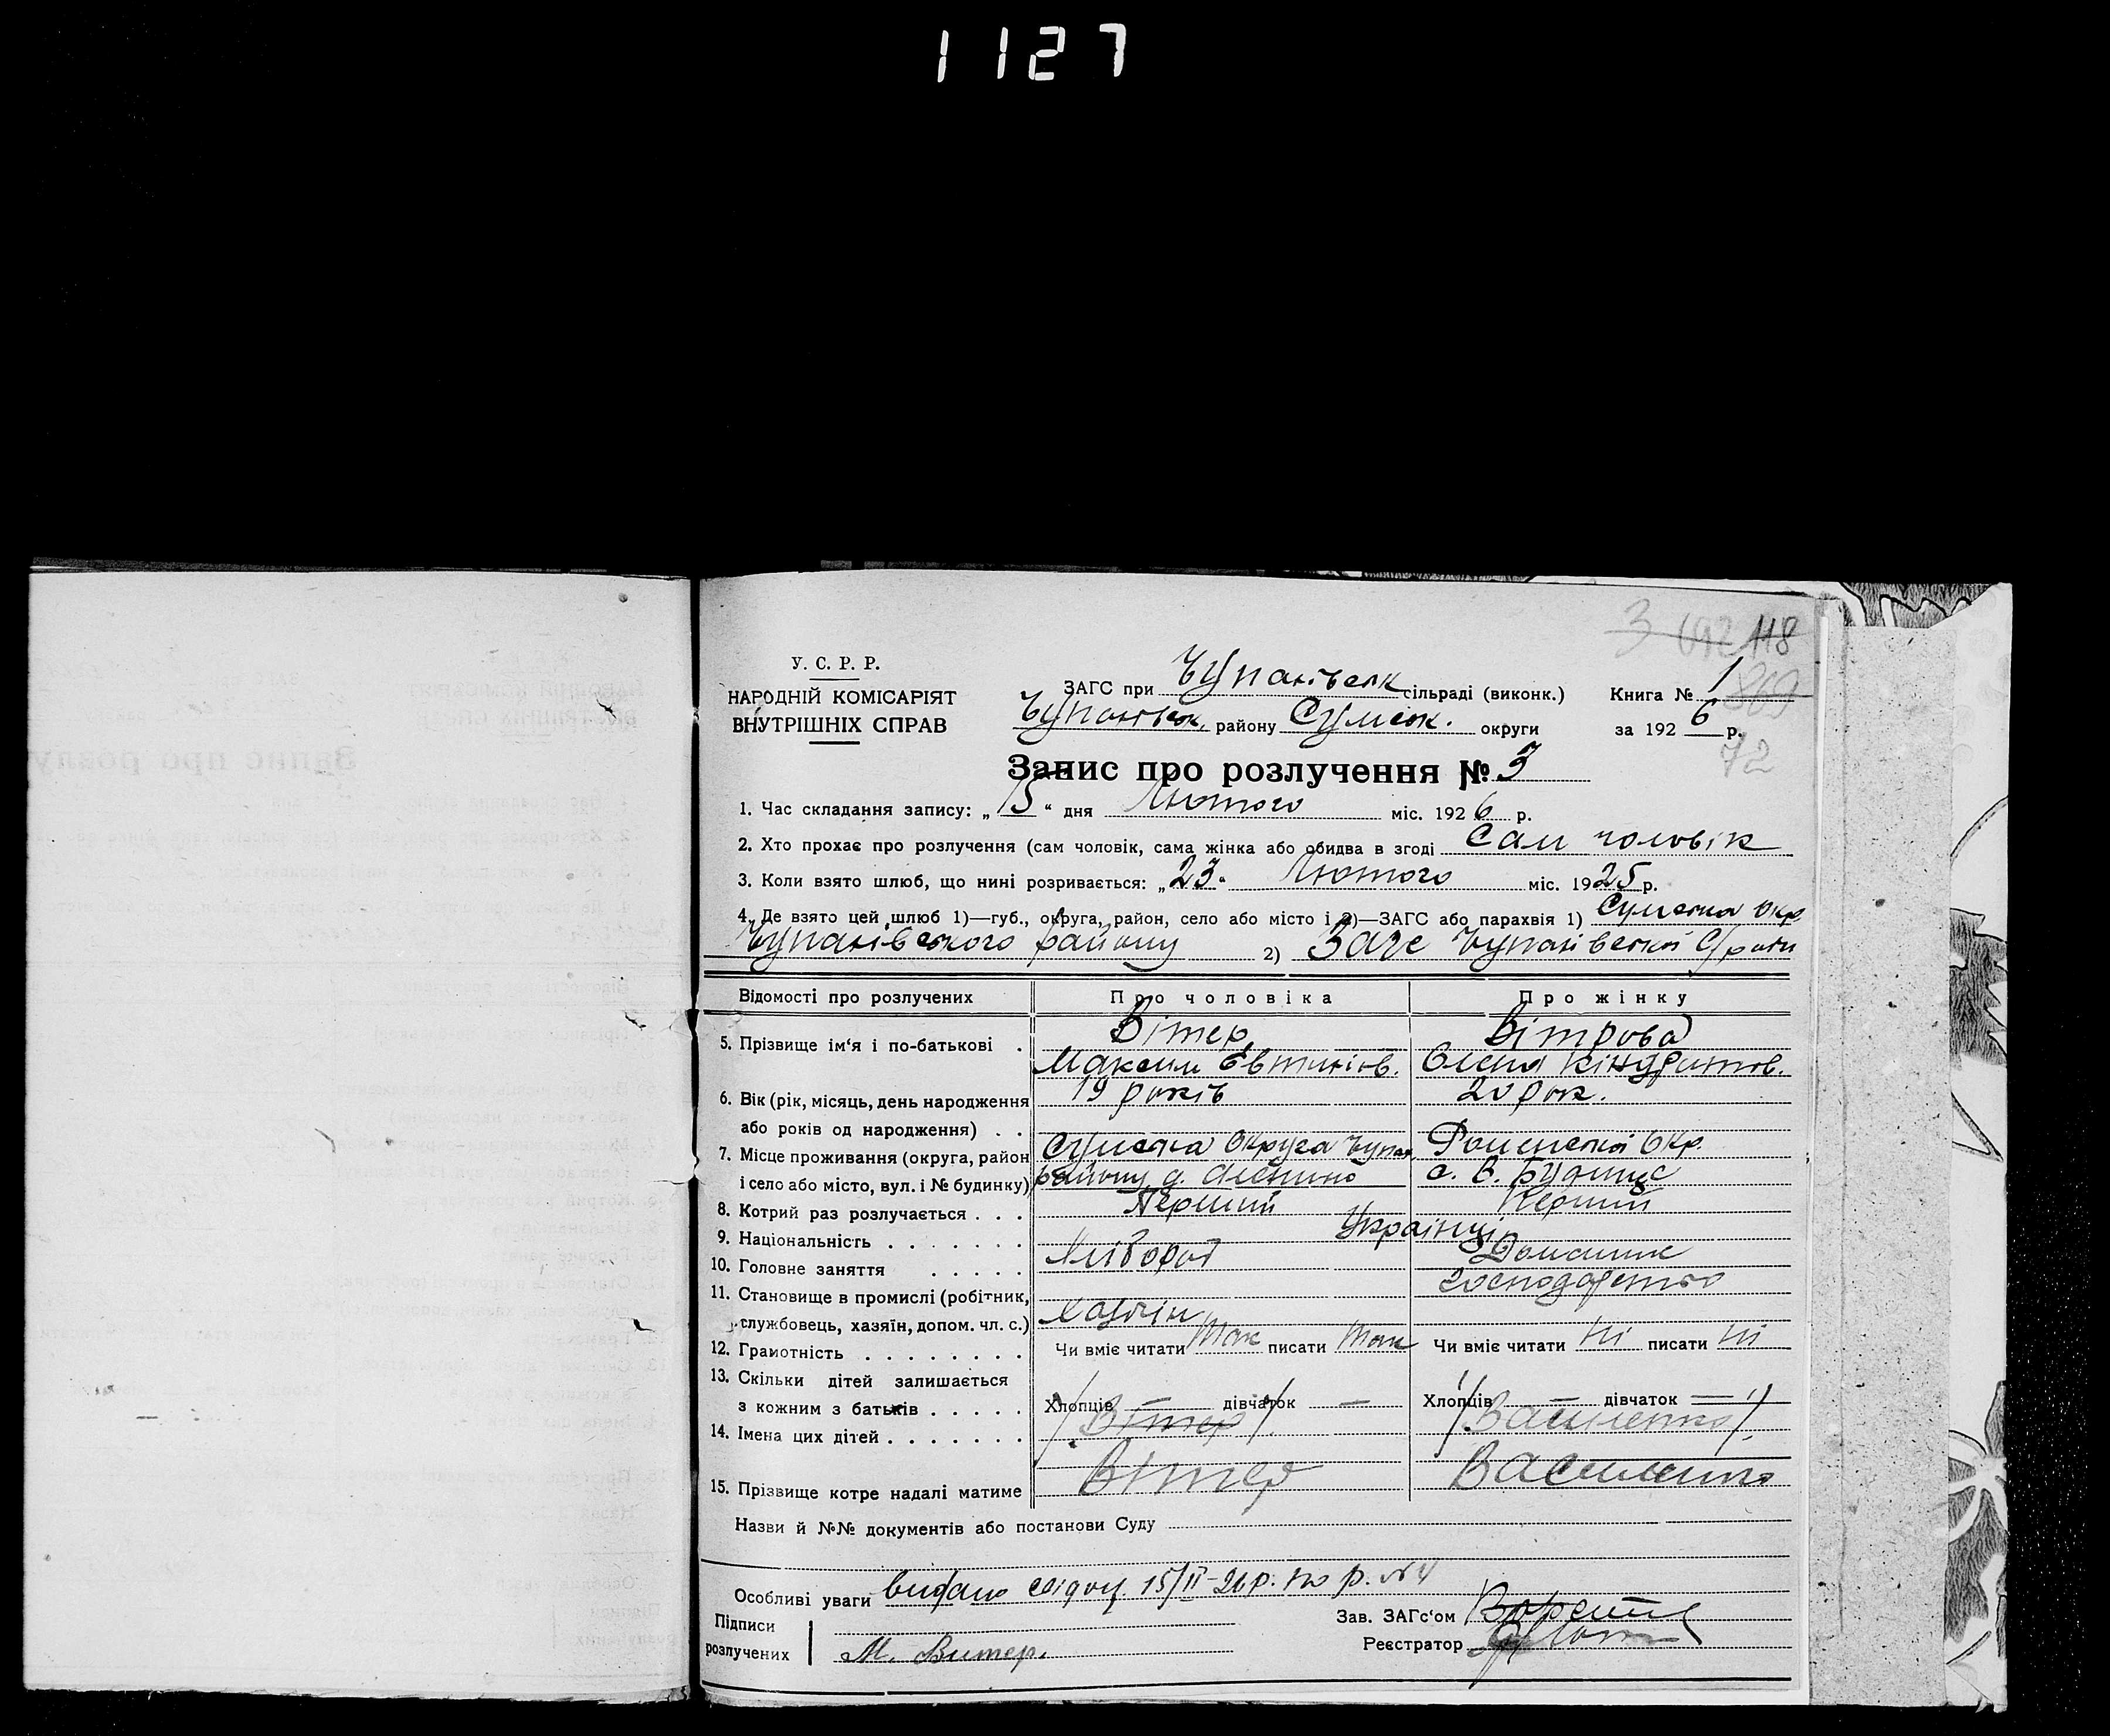 1127
3 692 118
У. С. Р. Р.
НАРОДНІЙ КОМІСАРІЯТ
ВНУТРІШНІХ СПРАВ
ЗАГС при Чупахівськ сільраді (виконк.) Книга № 1
Чупахівськ. району Сумськ. округи за 1926 р.
72
Запис про розлучення № 3
1. Час складання запису: „15“ дня Лютого міс. 1926 р.
2. Хто прохає про розлучення (сам чоловік, сама жінка або обидва в згоді Сам чоловік
3. Коли взято шлюб, що нині розривається: „23“ Лютого міс. 1925 р.
4. Де взято цей шлюб 1)—губ., округа, район, село або місто і 2)—ЗАГС або парахвія 1) Сумська Окр.
Чупахівського району 2) Загс Чупахівської С/ради
Відомості про розлучених Про чоловіка Про жінку
5. Прізвище ім‘я і по-батькові . Вітер Вітрова
Максим Олена Кіндратов.
6. Вік (рік, місяць, день народження 19 років 20 рок.
або років од народження) . .
7. Місце проживання (округа, район Сумська Округа Чупах. Роменської Окр.
і село або місто, вул. і № будинку) району с. В.
8. Котрий раз розлучається . . . Перший Перший
9. Національність . . . . . . . Українці
10. Головне заняття . . . . . Хлібороб Домашнє
господарство
11. Становище в промислі (робітник,
службовець, хазяїн, допом. чл. с.) Хазяїн
12. Грамотність . . . . . . . . Чи вміє читати Так писати Так Чи вміє читати Ні писати Ні
13. Скільки дітей залишається
з кожним з батьків . . . . . Хлопців — дівчаток — Хлопців — дівчаток —
14. Імена цих дітей . . . . . . . /Вітер/ /Василенко/
15. Прізвище котре надалі матиме Вітер Василенко
Назви й №№ документів або постанови Суду
Особливі уваги видано свідоц. 15/II-26р. по р. №4
Підписи
розлучених М. Витер.
Зав. ЗАГс‘ом
Реєстратор